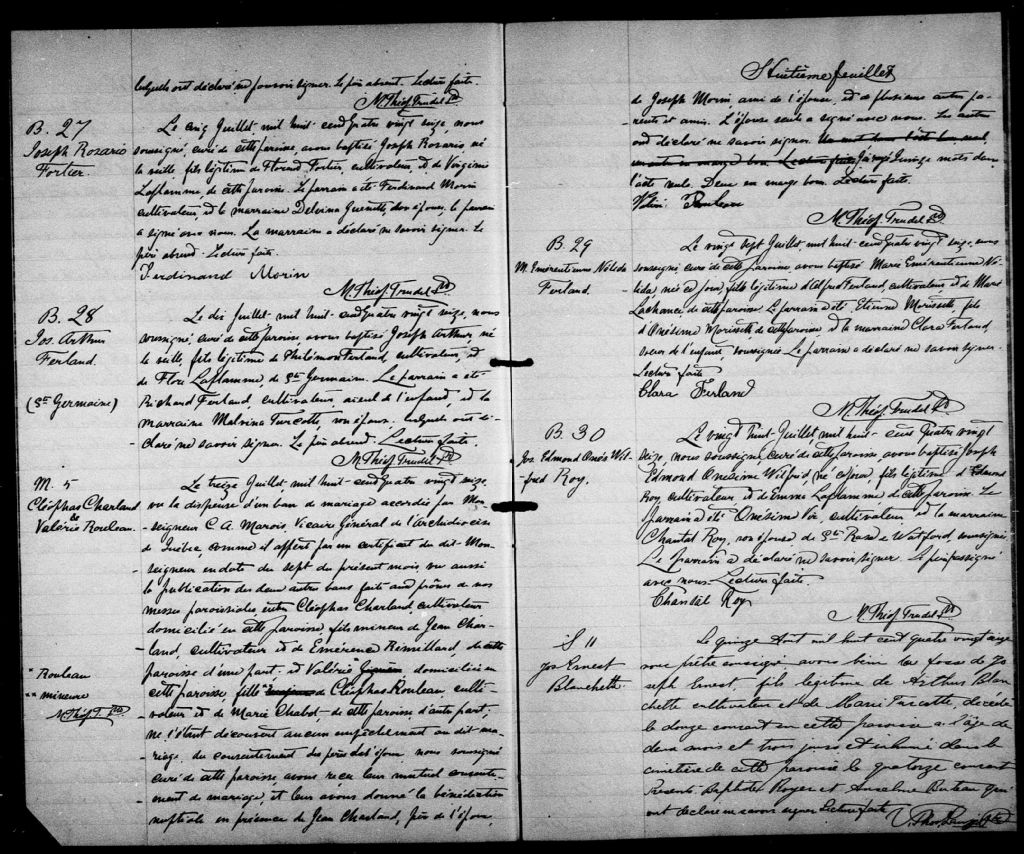 lesquels ont déclaré ne pouvoir signer. Le père absent. Lecture faite.
M. Théof. Trudel Ptre
B. 27
Joseph Rosario
Fortier.
Le cinq Juillet, mil huit-cent quatre vingt seize, nous
soussigné, curé de cette paroisse, avons baptisé Joseph Rosario né
la veille, fils légitime de Fortier, cultivateur, et de Virginie
Laflamme de cette paroisse. Le parrain a été Ferdinand Morin
cultivateur, et la marraine Delvina son épouse, le parrain
a signé avec nous. La marraine a déclaré ne savoir signer. Le
père absent. Lecture faite.
Ferdinand Morin
M. Théof. Trudel Ptre
B. 28
Jos. Arthur
Ferland.
(Ste Germaine)
Le dix Juillet, mil huit-cent quatre vingt seize, nous
soussigné, curé de cette paroisse, avons baptisé Joseph Arthur, né
la veille, fils légitime de Philémon Ferland, cultivateur, et
de Flore Laflamme, de Ste Germaine. Le parrain a été
Richard Ferland, cultivateur, aïeul de l'enfant, et la
marraine Malvina Turcotte, son épouse, lesquels ont dé-
claré ne savoir signer. Le père absent. Lecture faite.
M. Théof. Trudel Ptre
M. 5
Cléophas Charland
&
Valérie Rouleau.
Le treize Juillet, mil huit-cent quatre vingt seize,
vu la dispense d'un ban de mariage accordée par Mon-
seigneur C. A. Marois, Vicaire Général de l'Archidiocèse
de Québec, comme il appert par un certificat du dit Mon-
seigneur en date du sept du présent mois, vu aussi
la publication des deux autres bans faite aux prônes de nos
messes paroissiales, entre Cléophas Charland, cultivateur
domicilié en cette paroisse, fils mineur de Jean Char-
land, cultivateur et de Emérence Rémillard, de cette
paroisse d'une part, et Valérie domiciliée en
cette paroisse, fille de Cléophas Rouleau, culti-
vateur et de Marie Chabot de cette paroisse, d'autre part;
ne s'étant découvert aucun empêchement au dit ma-
riage, du consentement des pères des époux, nous soussigné
curé de cette paroisse avons reçu leur mutuel consente-
ment de mariage, et leur avons donné la bénédiction
nuptiale en présence de Jean Charland, père de l'époux,
* Rouleau
** mineure
M. Théof. T. Ptre
Huitième feuillet
de Joseph Morin, ami de l'épouse, et de plusieurs autres pa-
rents et amis. L'épouse seule a signé avec nous. Les autres
ont déclaré ne savoir signer.
mots dans
l'acte nuls. Deux en marge bons. Lecture faite.
Rouleau
M. Théof. Trudel Ptre
B. 29
M. Emérentienne
Ferland.
Le vingt sept Juillet, mil huit-cent quatre vingt seize, nous
soussigné, curé de cette paroisse, avons baptisé Marie Emérentienne
née ce jour, fille légitime d'Alfred Ferland, cultivateur, et de Marie
Lachance de cette paroisse. Le parrain a été Etienne Morissette, fils
d'Onésime Morissette, de cette paroisse, et la marraine Clara Ferland
soeur de l'enfant, soussignée. Le parrain a déclaré ne savoir signer.
Lecture faite
Clara Ferland
M. Théof. Trudel Ptre
B. 30
Jos. Edmond Onés. Wil-
fred Roy.
Le vingt huit Juillet mil huit-cent quatre vingt
seize, nous soussigné curé de cette paroisse, avons baptisé Joseph
Edmond Onésime Wilfrid, né ce jour, fils légitime d'Edmond
Roy, cultivateur et d'Emma Laflamme de cette paroisse. Le
parrain a été Onésime cultivateur, et la marraine
Chantal Roy, son épouse de Ste Rose de Watford, soussignée
Le parrain a déclaré ne savoir signer. Le père a signé
avec nous. Lecture faite.
Chantal Roy
M. Théof. Trudel Ptre
S 11
Jos Ernest
Blanchette
Le quinze Aout mil huit cent quatre vingt seize
nous prêtre soussigné avons béni la fosse de Jo-
seph Ernest, fils légitime de Arthur Blan-
chette cultivateur et de Marie Turcotte, décédé
le douze courant en cette paroisse a l'âge de
deux mois et trois jours et inhumé dans le
cimetière de cette paroisse le quatorze courant
Présents Baptiste Royer et Anselme Buteau qui
ont déclaré ne savoir signer Lecture faite